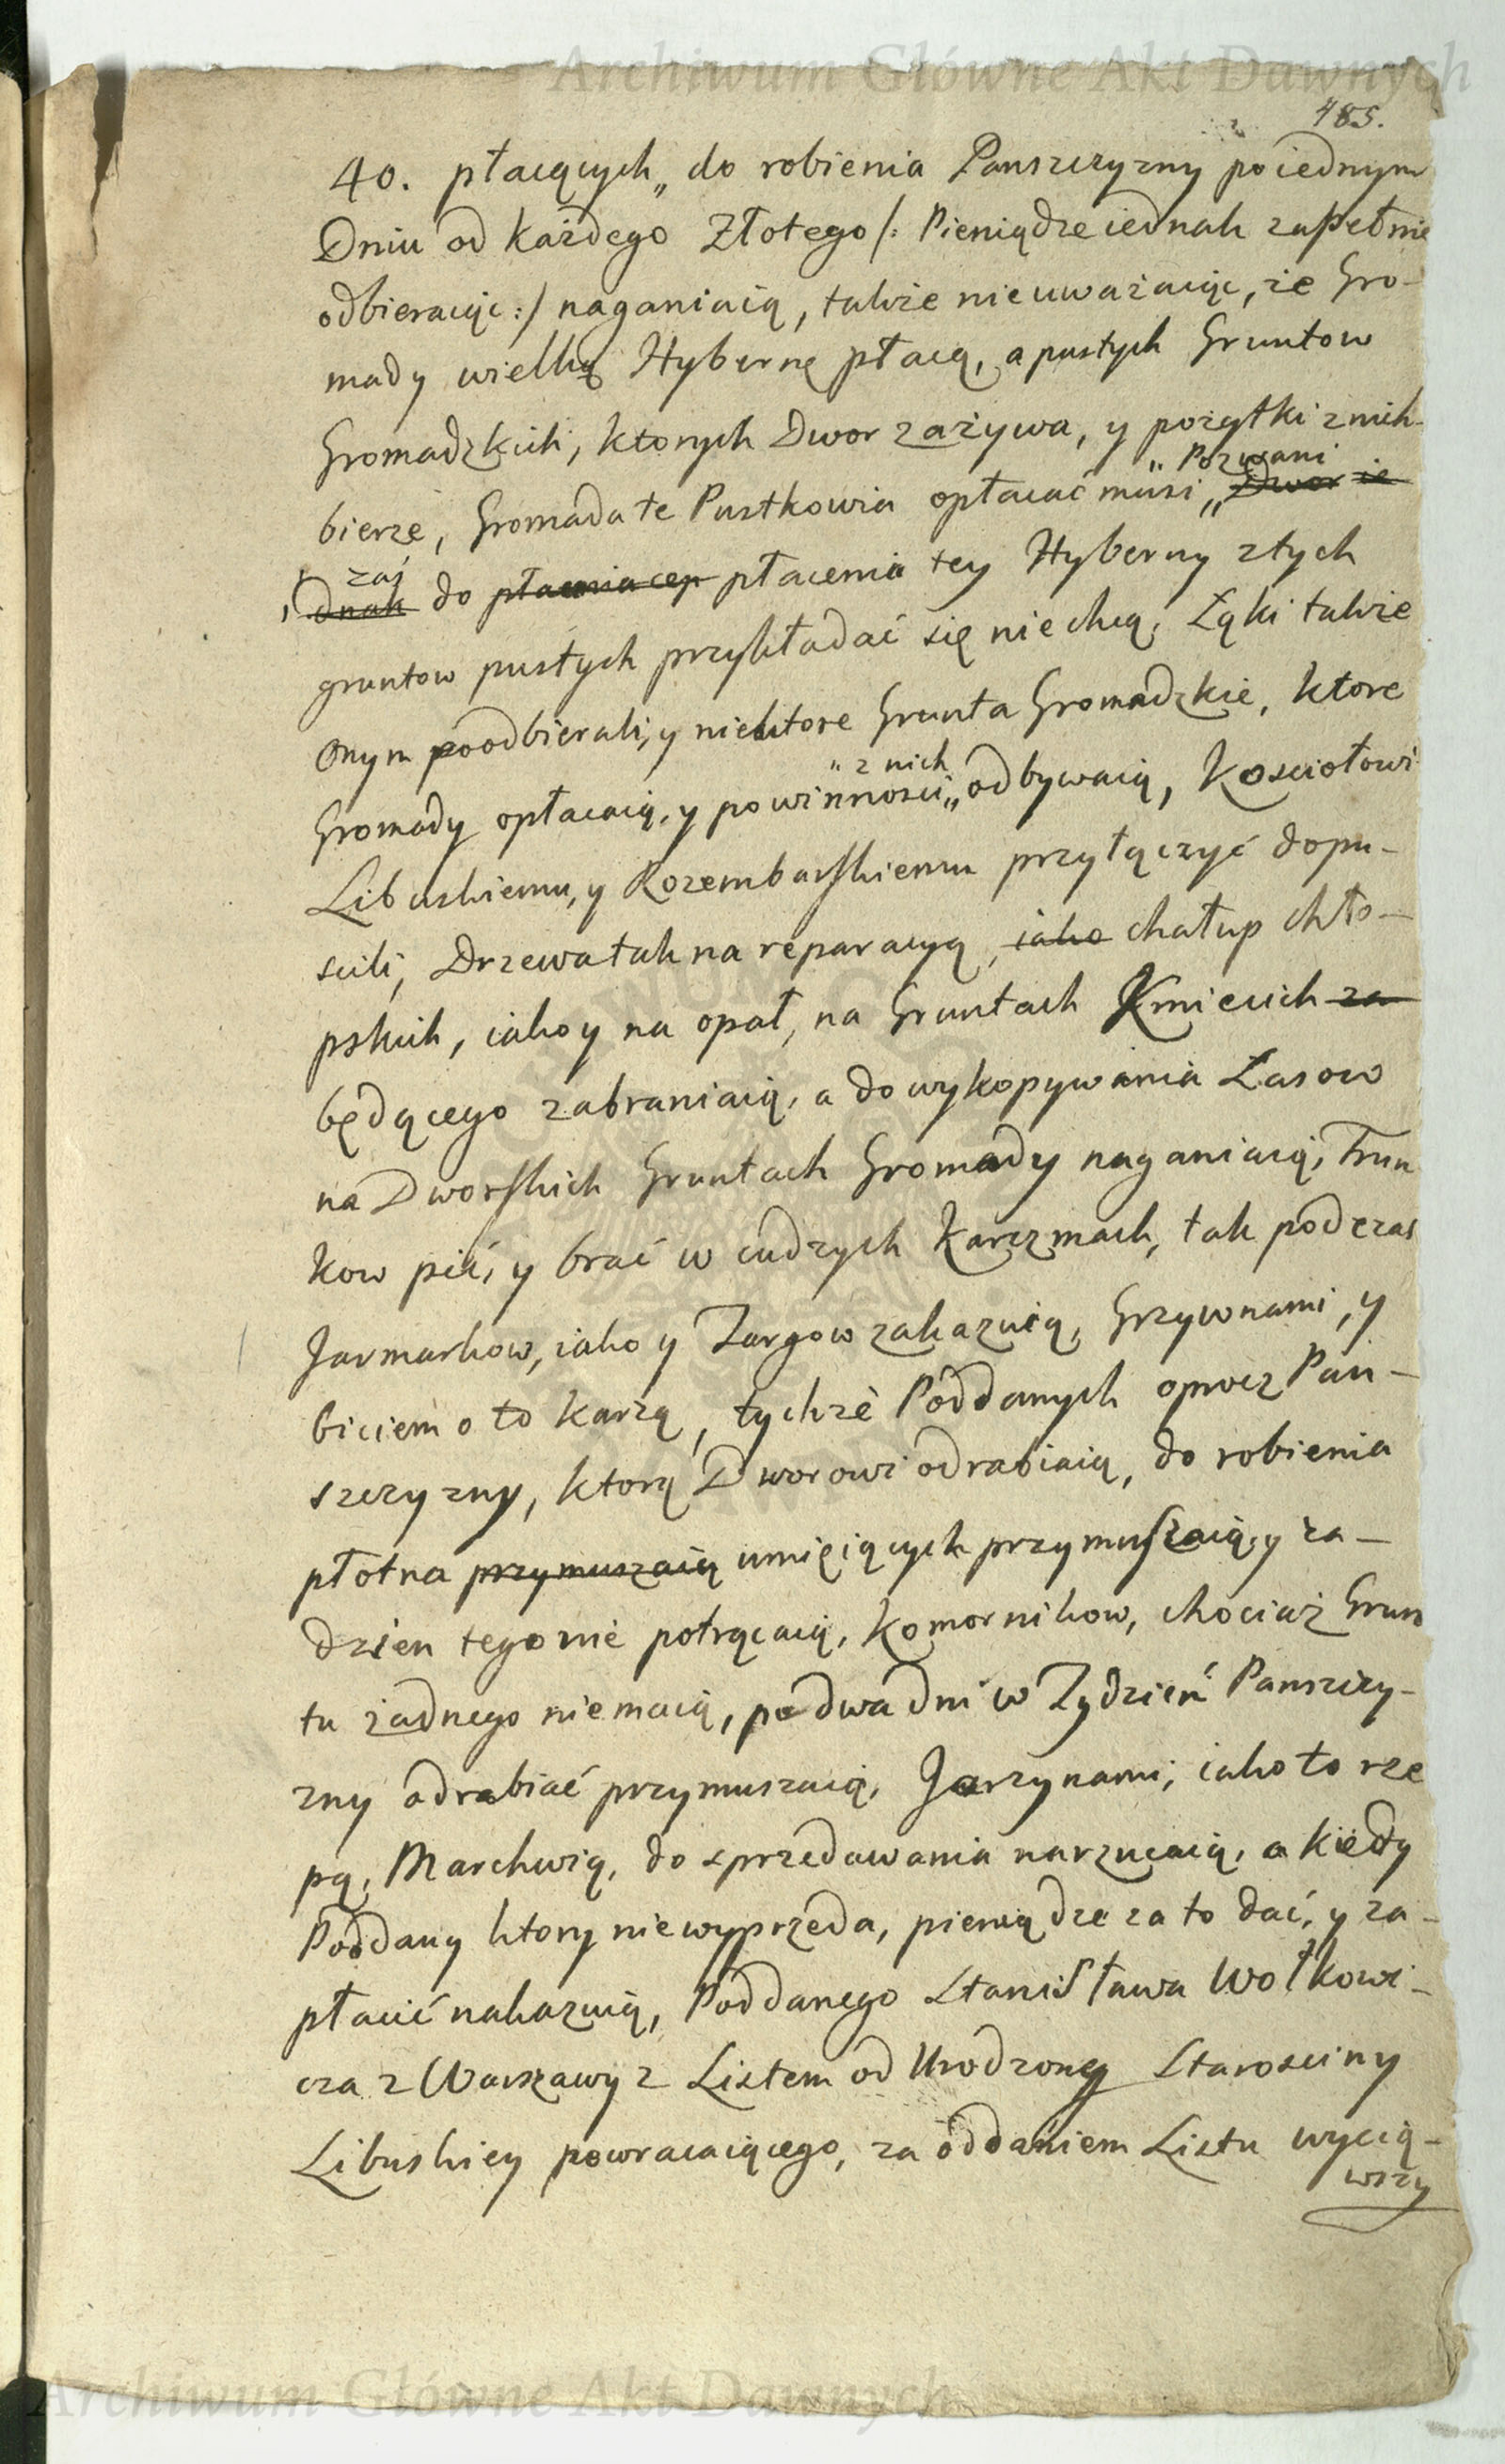 Archiwum Główne Akt Dawnych
485.
40. płacących„ do robienia Panszczyzny poiednym
Dniu od każdego Złotego /: Pieniądze iednak zupełnie
odbieraiąc :/ naganiaią, także nieuważaiąc, że Gro-
mady wielką Hybernę płacą, a pustych Gruntow
Gromadzkich, ktorych Dwor zażywa, y pożytki znich
bierze, Gromada te Pustkowia opłacać musi „ Dwor ie
„ Pozwani
dnak do płacenia cey płacenia tey Hyberny ztych
zaś
gruntow pustych przykładać się niechcą, Łąki także
onym poodbierali, y niektore Grunta Gromadzkie, ktore
Gromady opłacaią, y powinności „ odbywaią, Kosciołowi
„ z nich
Libuskiemu, y Rozembarskiemu przyłączyć dopu-
scili, Drzewa tak na reparacyą, iako chałup chło-
pskich, iako y na opał, na Gruntach Kmiecich za
będącego zabraniaią, a do wykopywania Lasow
na Dworskich Gruntach Gromady naganiaią, Trun
kow pić, y brać w cudzych Karczmach, tak podczas
Jarmarkow, iako y Targow zakazuią, Grzywnami, y
biciem o to karzą, tychże Poddanych oprocz Pan-
szczyzny, ktorą Dworowi odrabiaią, do robienia
płotna przymuszaią umieiących przymuszaią, y za-
dzien tego nie potrącaią, Komornikow, chociaż Grun
tu żadnego niemaią, po dwa dni w Tydzień Panszczy-
zny odrabiać przymuszaią, Jarzynami, iako to rze
pą, Marchwią, do sprzedawania narzucaią, a kiedy
Poddany ktory niewyprzeda, pieniądze za to dać, y za-
płacić nakazuią, Poddanego Stanisława Wołkowi-
cza z Warszawy z Listem od Urodzoney Starosciny
Libuskiey powracaiącego, za oddaniem Listu wycią-
wszy
Archiwum Główne Akt Dawnych